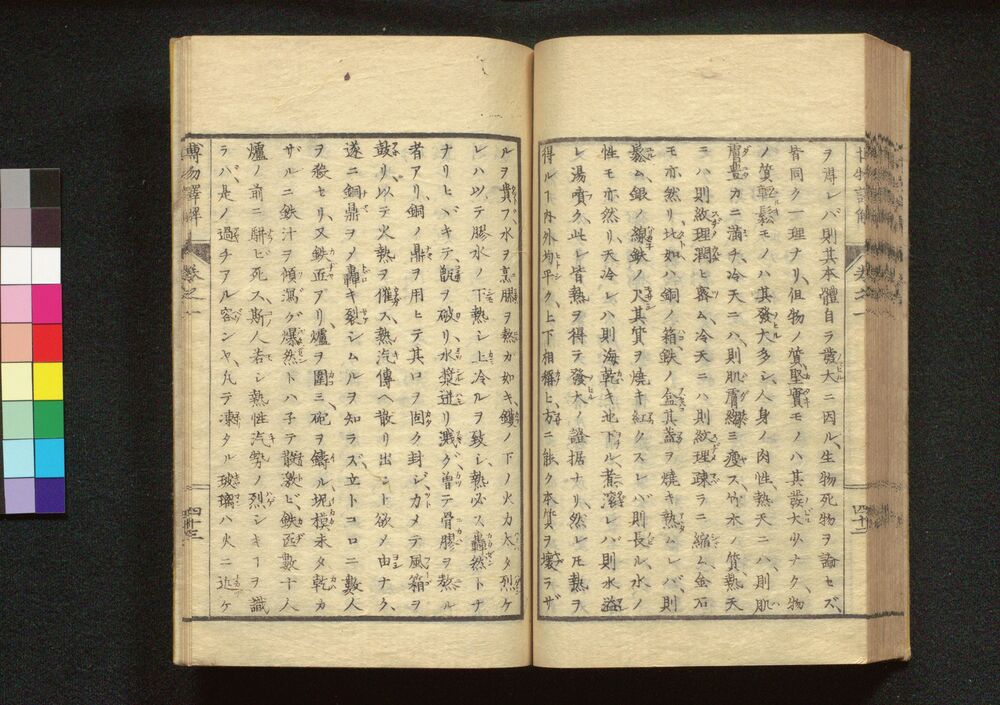 ヲ得レバ則其本體自ラ發大ニ因ル、生物死物ヲ論セズ、
皆同ク一理ナリ、但物ノ質堅實モノハ其發大少ナク、物
ノ質輕鬆モノハ其發大多シ、人身ノ肉性、熱天ニハ則肌
膚豊カニ滿チ冷天ニハ、則肌膚縐ミ瘦ス竹木ノ質熱天
ニハ則紋理潤ヒ密ム、冷天ニハ則紋理疎ラニ縮ム金石
モ亦然リ比如ハ銅ノ箱鉄ノ盒其蓋ヲ燒キ熱ムレバ、則
鬆ム、銀ノ線鉄ノ尺其質ヲ燒キ紅クスレバ則長ル、水ノ
性モ亦然リ、天冷レハ則海乾キ池下ル、煮滾レバ則水溢
レ湯噴ク、此レ皆熱ヲ得テ發大ノ證据ナリ、然レ𪜈熱ヲ
得ル丁内外均平ク、上下相稱ヒ、方ニ能ク本質ヲ壞ラザ
四十二
ルヲ貴フ、水ヲ烹膠ヲ熬カ如キ、鑊ノ下ノ火力大タ烈ケ
レハ以テ膠水ノ下熱シ上冷ルヲ致シ、熱必ス轟然トナ
ナリヒヾキテ、甑ヲ破リ水漿迸リ濺グ、曽テ骨膠ヲ熬ル
者アリ、銅ノ鼎ヲ用ヒテ其口ヲ固ク封ジ、カメテ風箱ヲ
鼓リ以テ火熱ヲ催ス、熱汽傳ヘ散リ出ント欲メ由ナク、
遂ニ銅鼎ヲメ轟キ裂シムルヲ知ラズ、立トコロニ數人
ヲ殺セリ、又鉄匠アリ、爐ヲ圍ミ砲ヲ鑄ル、坭模未タ乾カ
ザルニ鉄汁ヲ傾瀉グ爆然トハ子テ散激ヒ、鉄匠數十人
爐ノ前ニ駢ヒ死ス、斯ノ人若シ熱性汽勢ノ烈シキコヲ識
ラバ、是ノ過チアル容ンヤ、凡テ凍タル玻璃ハ火ニ近ケ
博物譯解
卷之一
四十三